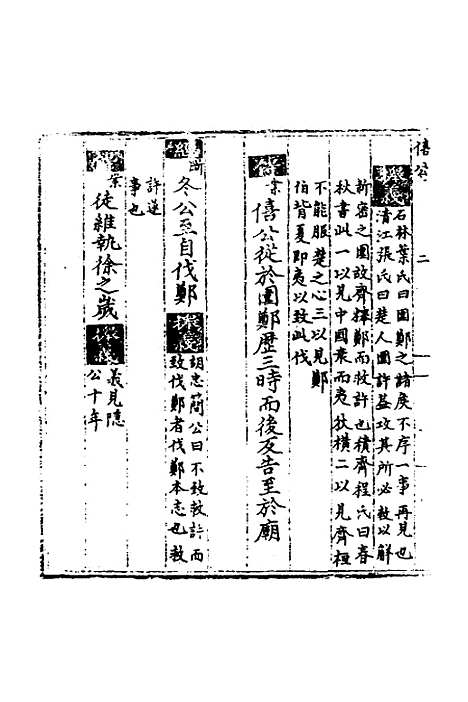 僖公
二
石林葉氏曰圍鄭之諸侯不序一事再見也
清江張氏曰楚人圍許盖攻其所必救以解
新密之圍故齊釋鄭而救許也積齊程氏曰春
秋書此一以見中國衰而夷狄橫二以見齊桓
不能服楚之心三以見鄭
伯背夏即夷以致此伐
僖公從於圍鄭歷三時而後反告至於廟
冬公至自伐鄭
胡忠簡公曰不致救許而
致伐鄭者伐鄭本志也救
許遂
事也
徒維執徐之歲
義見隱
公十年